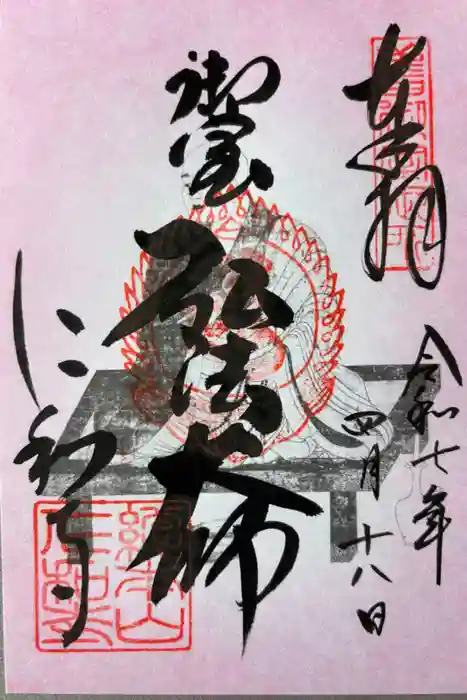 奉拝
令和七年
四月十八日
御室
弘法大師
仁和寺